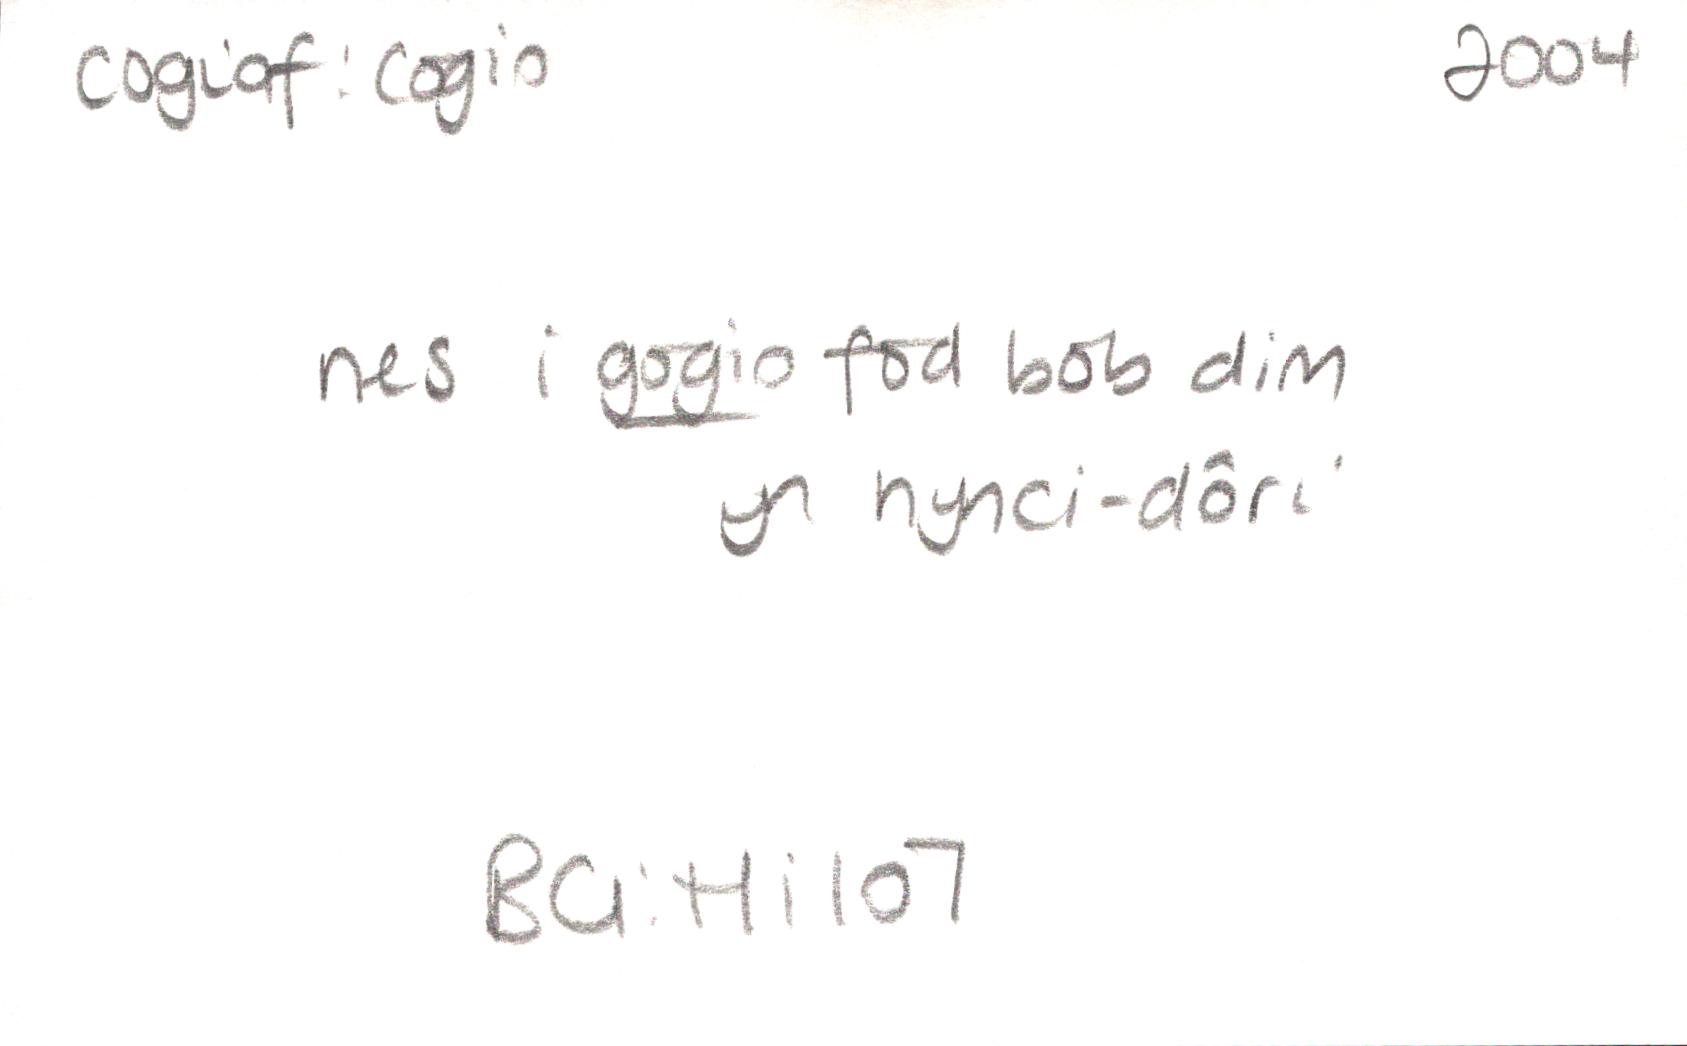 cogiaf: cogio 2004
nes i gogio fod bob dim
yn hynci-dôri
BG: Hi 107